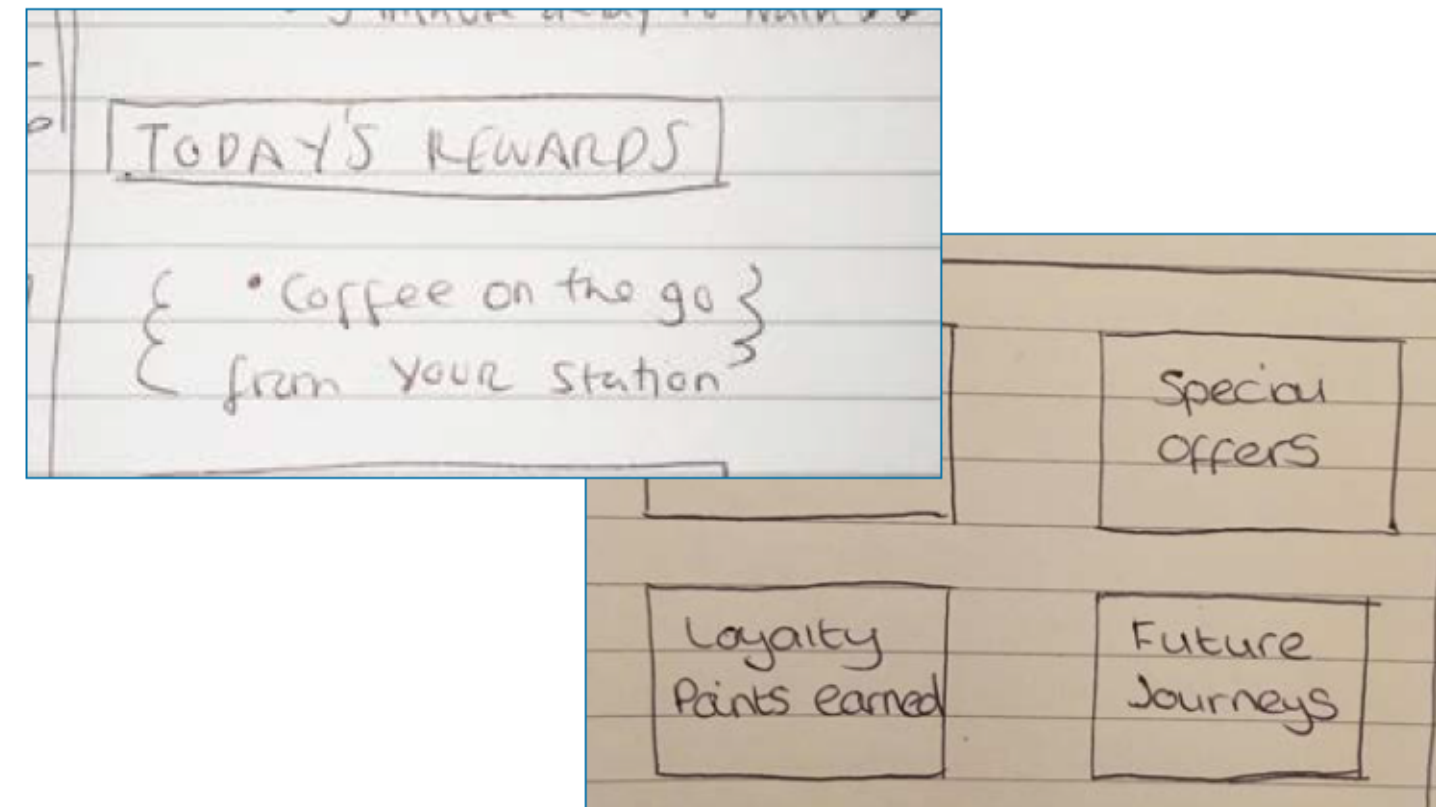 TODAY'S REWARDS
• Coffee on the go
from YOUR station
Special
Offers
Loyalty
Points earned
Future
Journeys